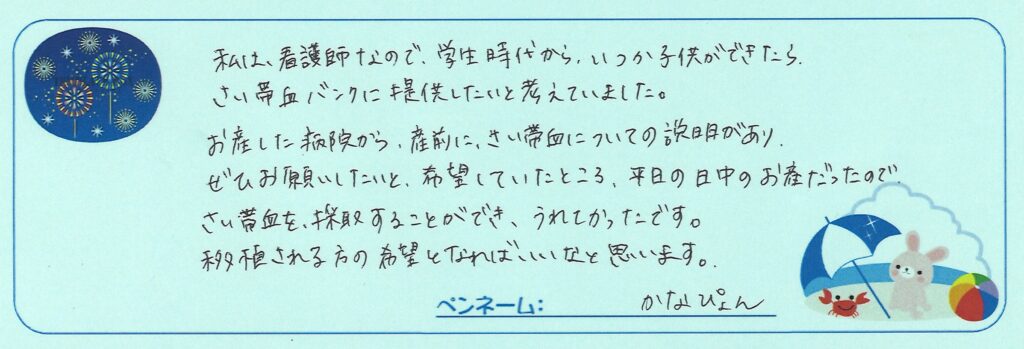 私は、看護師なので、学生時代から、いつか子供ができたら、
さい帯血バンクに提供したいと考えていました。
お産した病院から、産前に、さい帯血についての説明があり、
ぜひお願いしたいと、希望していたところ、平日の日中のお産だったので、
さい帯血を、採取することができ、うれしかったです。
移植される方の希望となればいいなと思います。
ペンネーム: かなぴょん